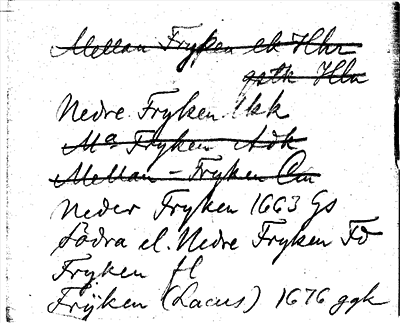 Mellan Fryken ek Hhr
gstk Hln
Nedre Fryken lkk
Ma Fryken Adk
Mellan - Fryken Cm
Neder Fryken 1663 Gs
Södra el. Nedre Fryken Fd
Fryken fl
Frÿken (Lacus) 1676 ggk